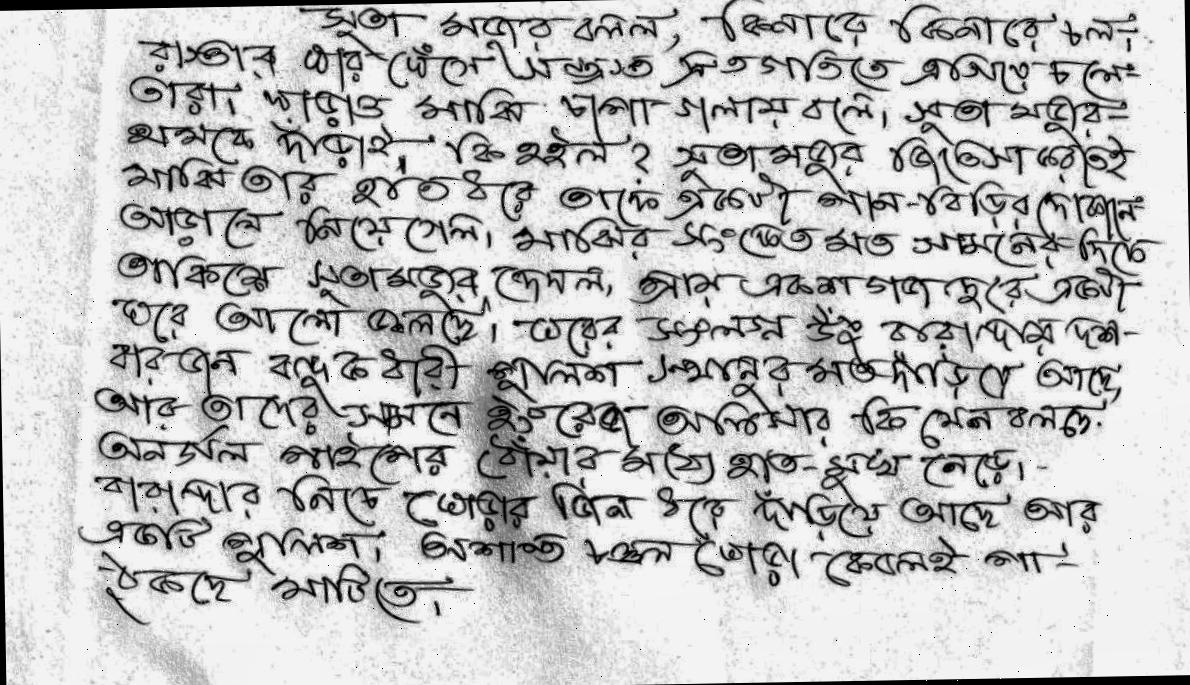 সুতা মজুর বলল, কিনারে কিনারে চল।
রাস্তার ধার ঘেঁসে সন্ত্রস্ত দ্রুতগতিতে এগিয়ে চলে
তারা। দাড়াও মাঝি চাপা গলায় বলে। সুতা মজুর
থমকে দাঁড়াই, কি হইল? সুতামজুর জিতেসা করেতেই
মাঝি তার হাত ধরে তাকে একটা পান-বিড়ির দোকানের
আড়ালে নিয়ে গেল। মাঝির সংকেত মত সামনের দিকে
তাকিয়ে সুতামজুর দেখল, প্রায় একশ গজ দূরে একটা
ঘরে আলো জ্বলছে। ঘরের সংলগ্ন উঁচু বারান্দায় দশ-
বার জন বন্দুকধারী পুলিশ স্থানুর মত দাঁড়িয়ে আছে,
আর তাদের সামনে ইংরেজ অফিসার কি যেন বলছে
অনর্গল পাইপের ধোঁয়ার মধ্যে হাত-মুখ নেড়ে।
বারান্দার নিচে ঘোড়ার জিন ধরে দাঁড়িয়ে আছে আর
একটি পুলিশ। অশান্ত চঞ্চল ঘোড়া কেবলই পা
ঠুকছে মাটিতে।